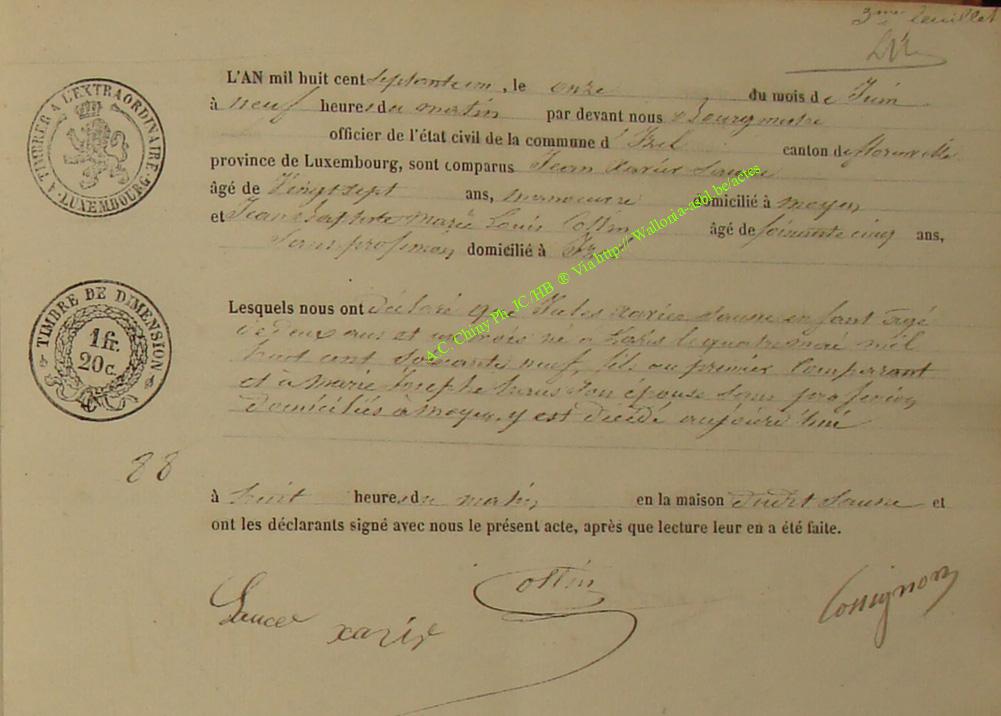 3me feuillet
L'AN mil huit cent septante un, le onze du mois de Juin
à neuf heures du matin par devant nous Bourgmestre
officier de l'état civil de la commune d'Izel canton de florenville
province de Luxembourg, sont comparus Jean Xavier
âgé de Vingt sept ans, manoeuvre domicilié à moyen
et Jean baptiste Marie Louis Ottin âgé de soixante cinq ans,
sans profession domicilié à Izel
Lesquels nous ont déclaré que Jules Xavier enfant âgé
de deux ans et un mois né à Paris le quatre mai mil
huit cent soixante neuf, fils au premier Comparant
et à Marie Josephe son épouse sans profession
domiciliés à moyen, y est décédé aujourd'hui
à huit heures du matin en la maison dudit et
ont les déclarants signé avec nous le présent acte, après que lecture leur en a été faite.
88
Ottin
Xavier
Cossignon
A TIMBRER A L'EXTRAORDINAIRE
LUXEMBOURG
TIMBRE DE DIMENSION
1 fr.
20 c.
A.C. Chiny Ph. JC/HB ® Via http://Wallonia-asbl.be/actes